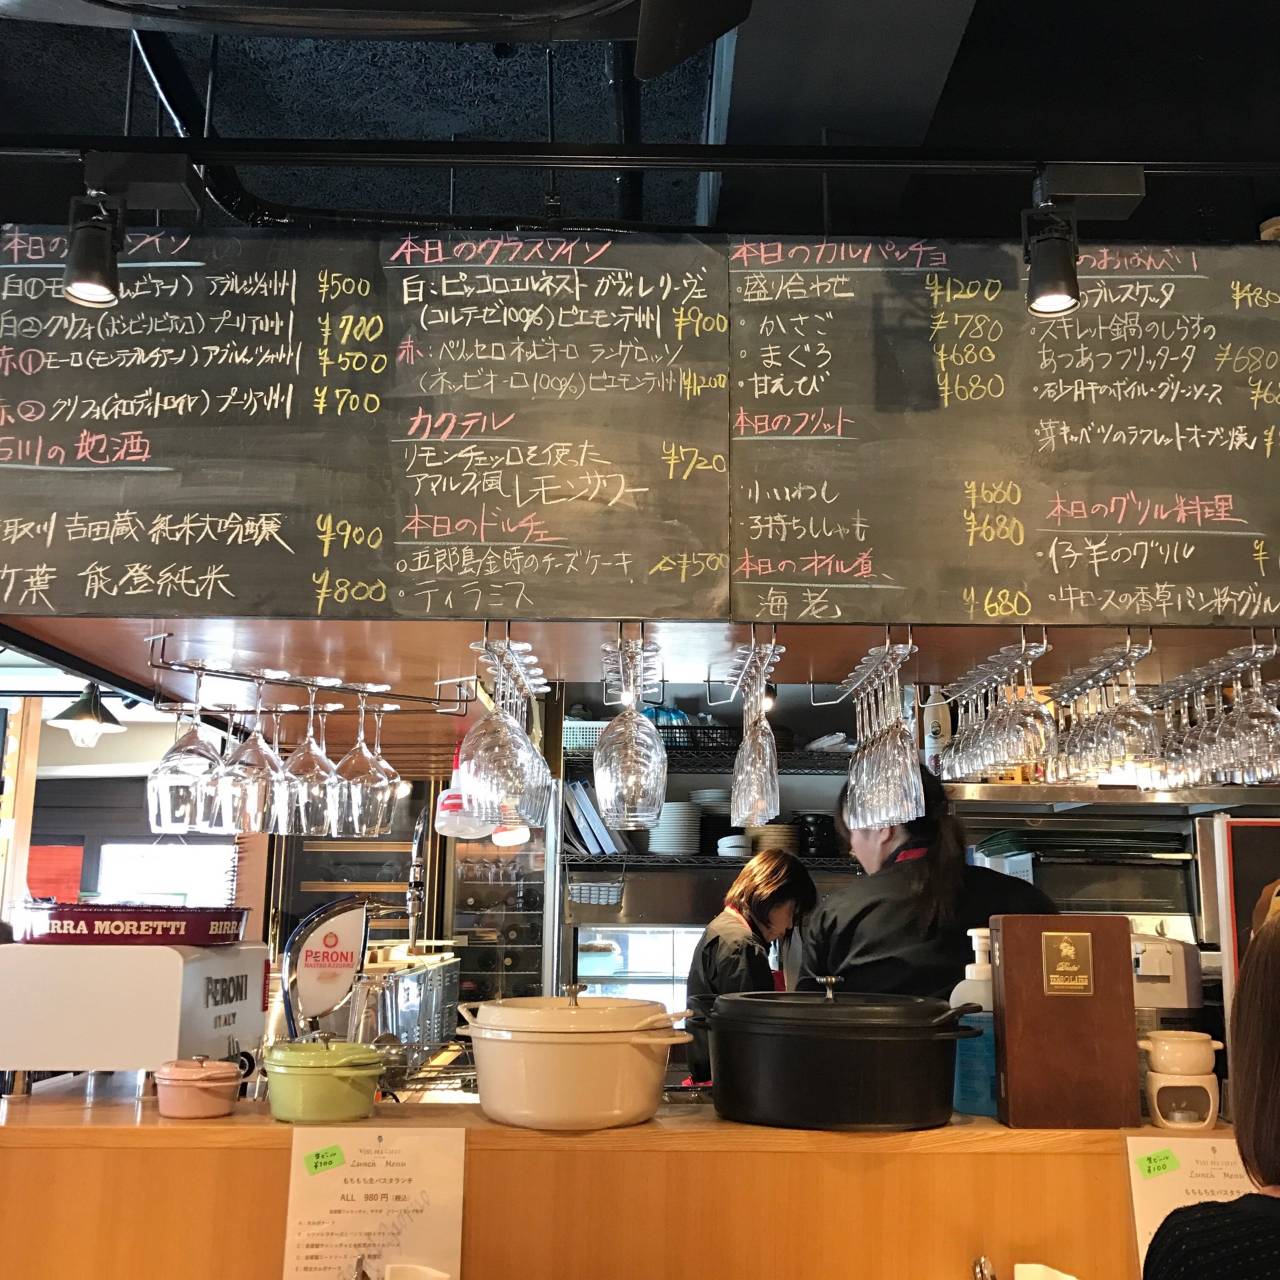 本日の
ワイン
白①モ
アブルッツォ州
¥500
白②グリフォ(ボンビーノビアンコ)プーリア州
¥700
赤①モーロ(モンテプルチアーノ)アブルッツォ州
¥500
赤②グリフォ(ネロディトロイヤ)プーリア州
¥700
石川の地酒
取川 吉田蔵 純米大吟醸
¥900
竹葉 能登純米
¥800
本日のグラスワイン
白:ピッコロエルネスト ガヴィレリーヴェ
(コルテーゼ100%)ピエモンテ州 ¥900
赤:ペリッセロネッビオーロ ランゲロッソ
(ネッビオーロ100%)ピエモンテ州 ¥1200
カクテル
リモンチェッロを使った
アマルフィ風レモンサワー
¥720
本日のドルチェ
○五郎島金時のチーズケーキ
・ティラミス
¥500
本日のカルパッチョ
・盛り合わせ ¥1200
・かさご ¥780
・まぐろ ¥680
・甘えび ¥680
本日のフリット
・小いわし ¥680
・子持ちししゃも ¥680
本日のオイル煮
海老 ¥680
のおばんざい
のブルスケッタ ¥480
・スキレット鍋のしらすの
あつあつフリッタータ ¥680
・砂肝のボイル・グリーンソース
・芽キャベツのラクレットオーブン焼
本日のグリル料理
・仔羊のグリル
・牛ロースの香草パン粉グリル
BIRRA MORETTI BIRR
PERONI
ITALY
PERONI
NASTRO AZZURRO
生ビール
¥100
Lunch Menu
もちもち生パスタランチ
ALL 980円(税込)
生ビール
¥100
Lunch Menu
もちもち生パスタラ